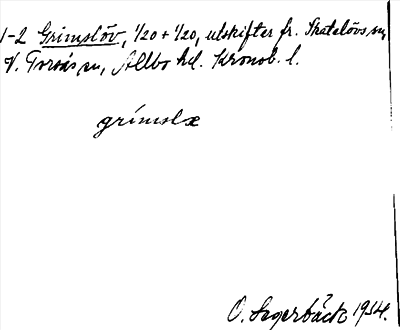 1-2 Grimslöv, 1/20 + 1/20, utskifter fr. Skatelövs sn,
V. Torsås sn, Allbo hd. Kronob. l.
grímslæ
O. Segerbäck 1934.